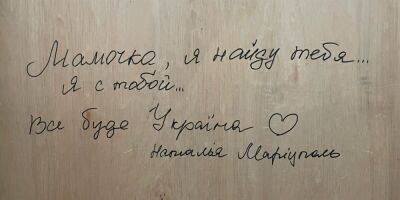 Мамочка, я найду тебя...
Я с тобой...
Все буде Україна ♡
Наталья Маріуполь